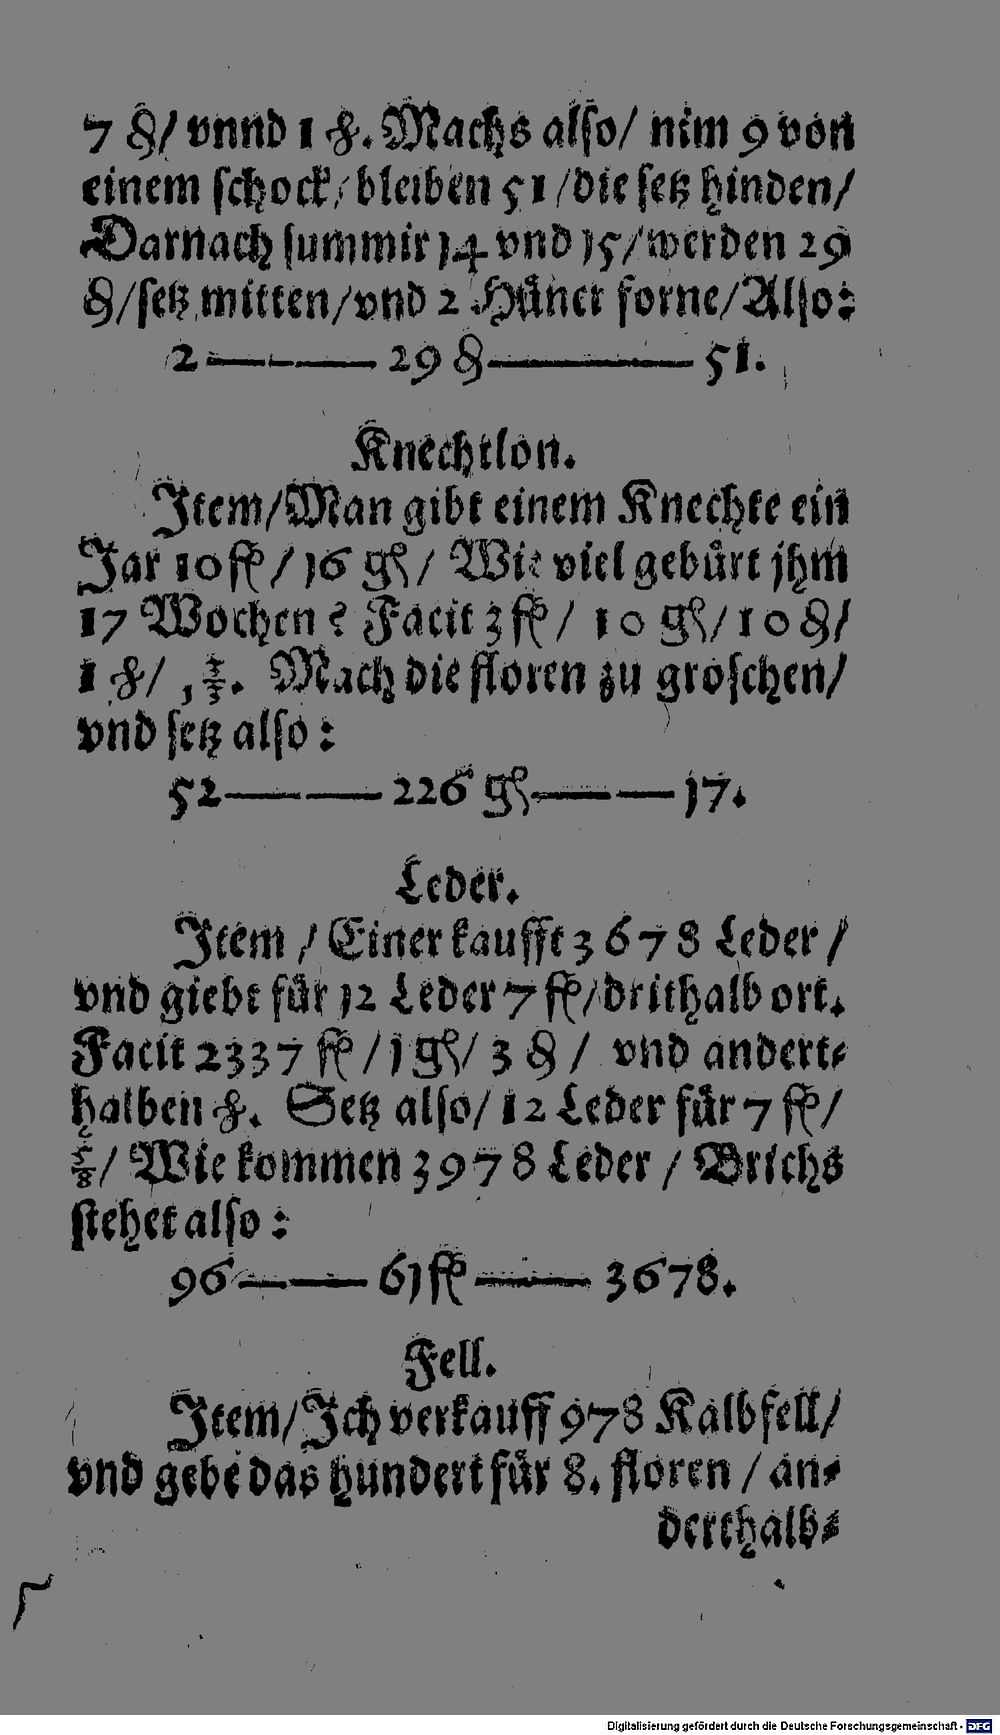 7 ₰/ vnnd 1 ₰. Machs also/ nim 9 von
einem schock/ bleiben 51/ die setz hinden/
Darnach summir 14 vnd 15/ werden 29
₰/ setz mitten/ vnd 2 Hůner forne/ Also:
2 ——— 29 ₰ ——— 51.
Knechtlon.
Item/ Man gibt einem Knechte ein
Jar 10 fl/ 16 gl/ Wie viel gebůrt jhm
17 Wochen? Facit 3 fl/ 10 gl/ 10 ₰/
1 ₰/ Mach die floren zu groschen/
vnd setz also:
52 ——— 226 gl ——— 17.
Leder.
Item/ Einer kaufft 3678 Leder/
vnd giebt fůr 12 Leder 7 fl/ drithalb ort.
Facit 2337 fl/ 1 gl/ 3 ₰/ vnd andert⸗
halben ₰. Setz also/ 12 Leder fůr 7 fl/
5/8/ Wie kommen 3978 Leder/ Brichs
stehet also:
96 ——— 61 fl ——— 3678.
Fell.
Item/ Ich verkauff 978 Kalbfell/
vnd gebe das hundert fůr 8. floren/ an⸗
derthalb⸗
Digitalisierung gefördert durch die Deutsche Forschungsgemeinschaft - DFG